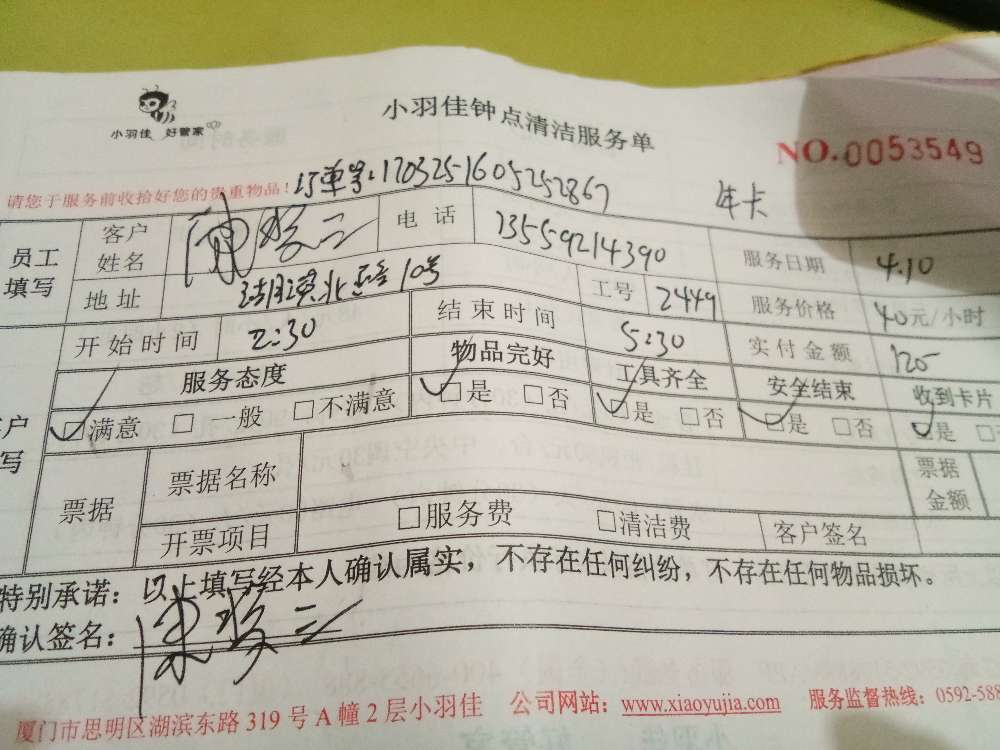 小羽佳 好管家
小羽佳钟点清洁服务单
NO.0053549
请您于服务前收拾好您的贵重物品!
订单号:1703251605252867
年卡
员工填写 客户姓名 电话 13559214390 服务日期 4.10
地址 北路10号 工号 2449 服务价格 40元/小时
开始时间 2:30 结束时间 5:30 实付金额 120
服务态度 物品完好 工具齐全 安全结束 收到卡片
满意 一般 不满意 是 否 是 否 是 否 是
票据 票据名称 票据金额
开票项目 服务费 清洁费 客户签名
特别承诺:以上填写经本人确认属实,不存在任何纠纷,不存在任何物品损坏。
确认签名:
厦门市思明区湖滨东路319号A幢2层小羽佳 公司网站:www.xiaoyujia.com 服务监督热线:0592-588